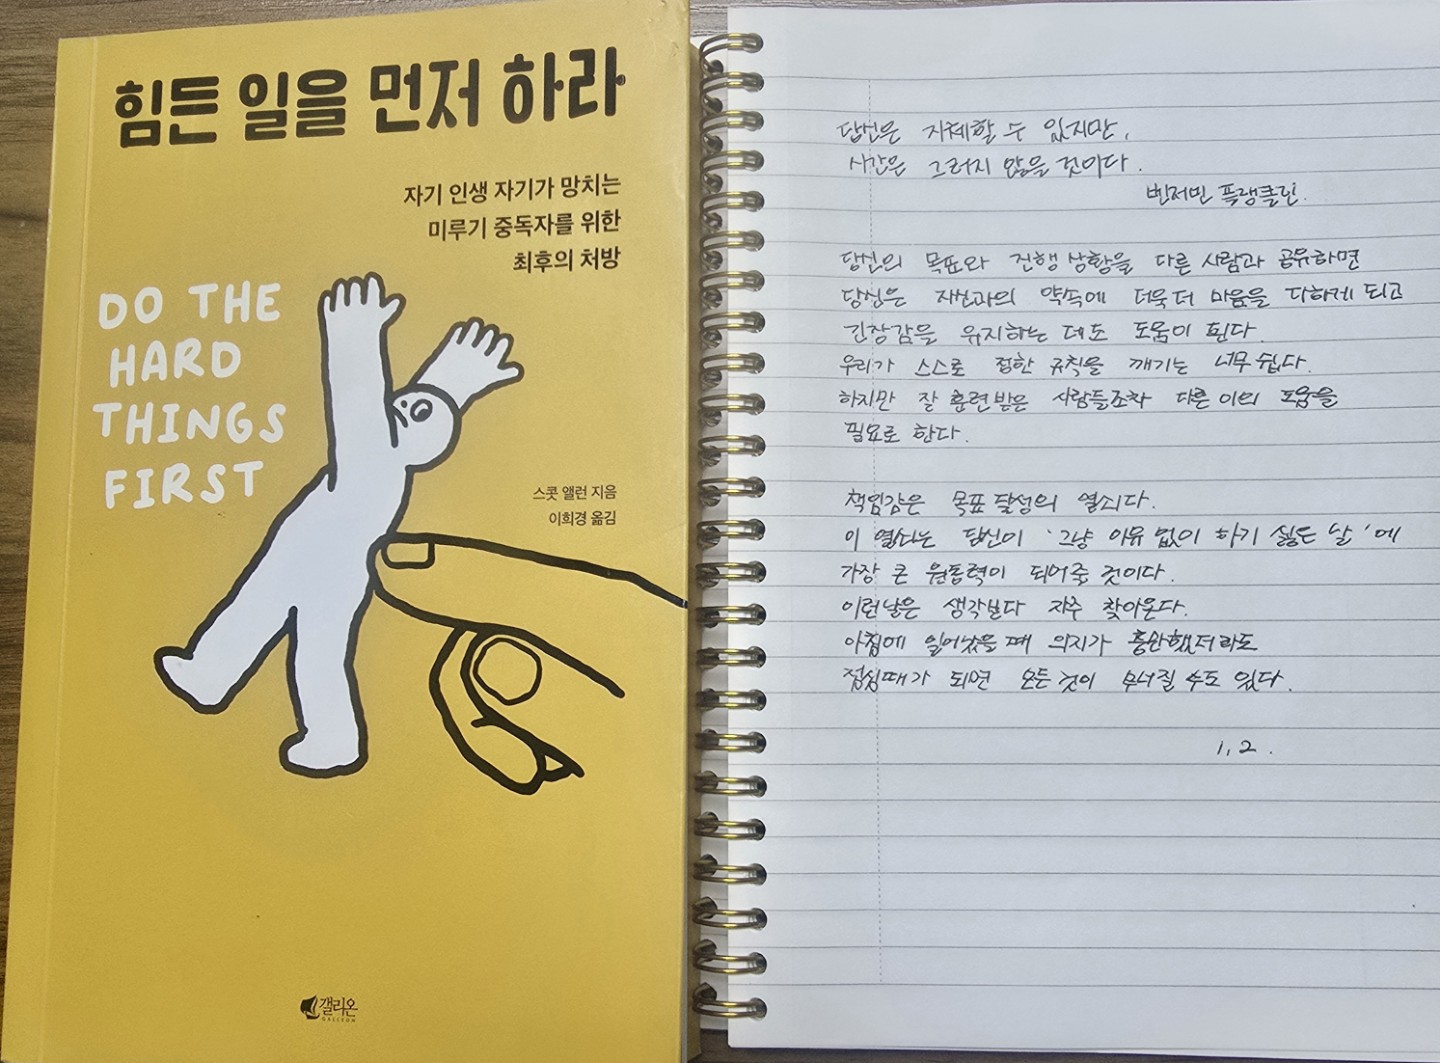 힘든 일을 먼저 하라
자기 인생 자기가 망치는
미루기 중독자를 위한
최후의 처방
DO THE
HARD
THINGS
FIRST
스콧 앨런 지음
이희경 옮김
갤리온
GALLEON
당신은 지체할 수 있지만,
시간은 그러지 않을 것이다.
벤저민 프랭클린.
당신의 목표와 진행 상황을 다른 사람과 공유하면
당신은 자신과의 약속에 더욱 더 마음을 다하게 되고
긴장감을 유지하는 데도 도움이 된다.
우리가 스스로 정한 규칙을 깨기는 너무 쉽다.
하지만 잘 훈련받은 사람들조차 다른 이의 도움을
필요로 한다.
책임감은 목표 달성의 열쇠다.
이 열쇠는 당신이 '그냥 이유 없이 하기 싫은 날'에
가장 큰 원동력이 되어줄 것이다.
이런날은 생각보다 자주 찾아온다.
아침에 일어났을 때 의지가 충만했더라도
점심때가 되면 모든 것이 무너질 수도 있다.
1, 2.